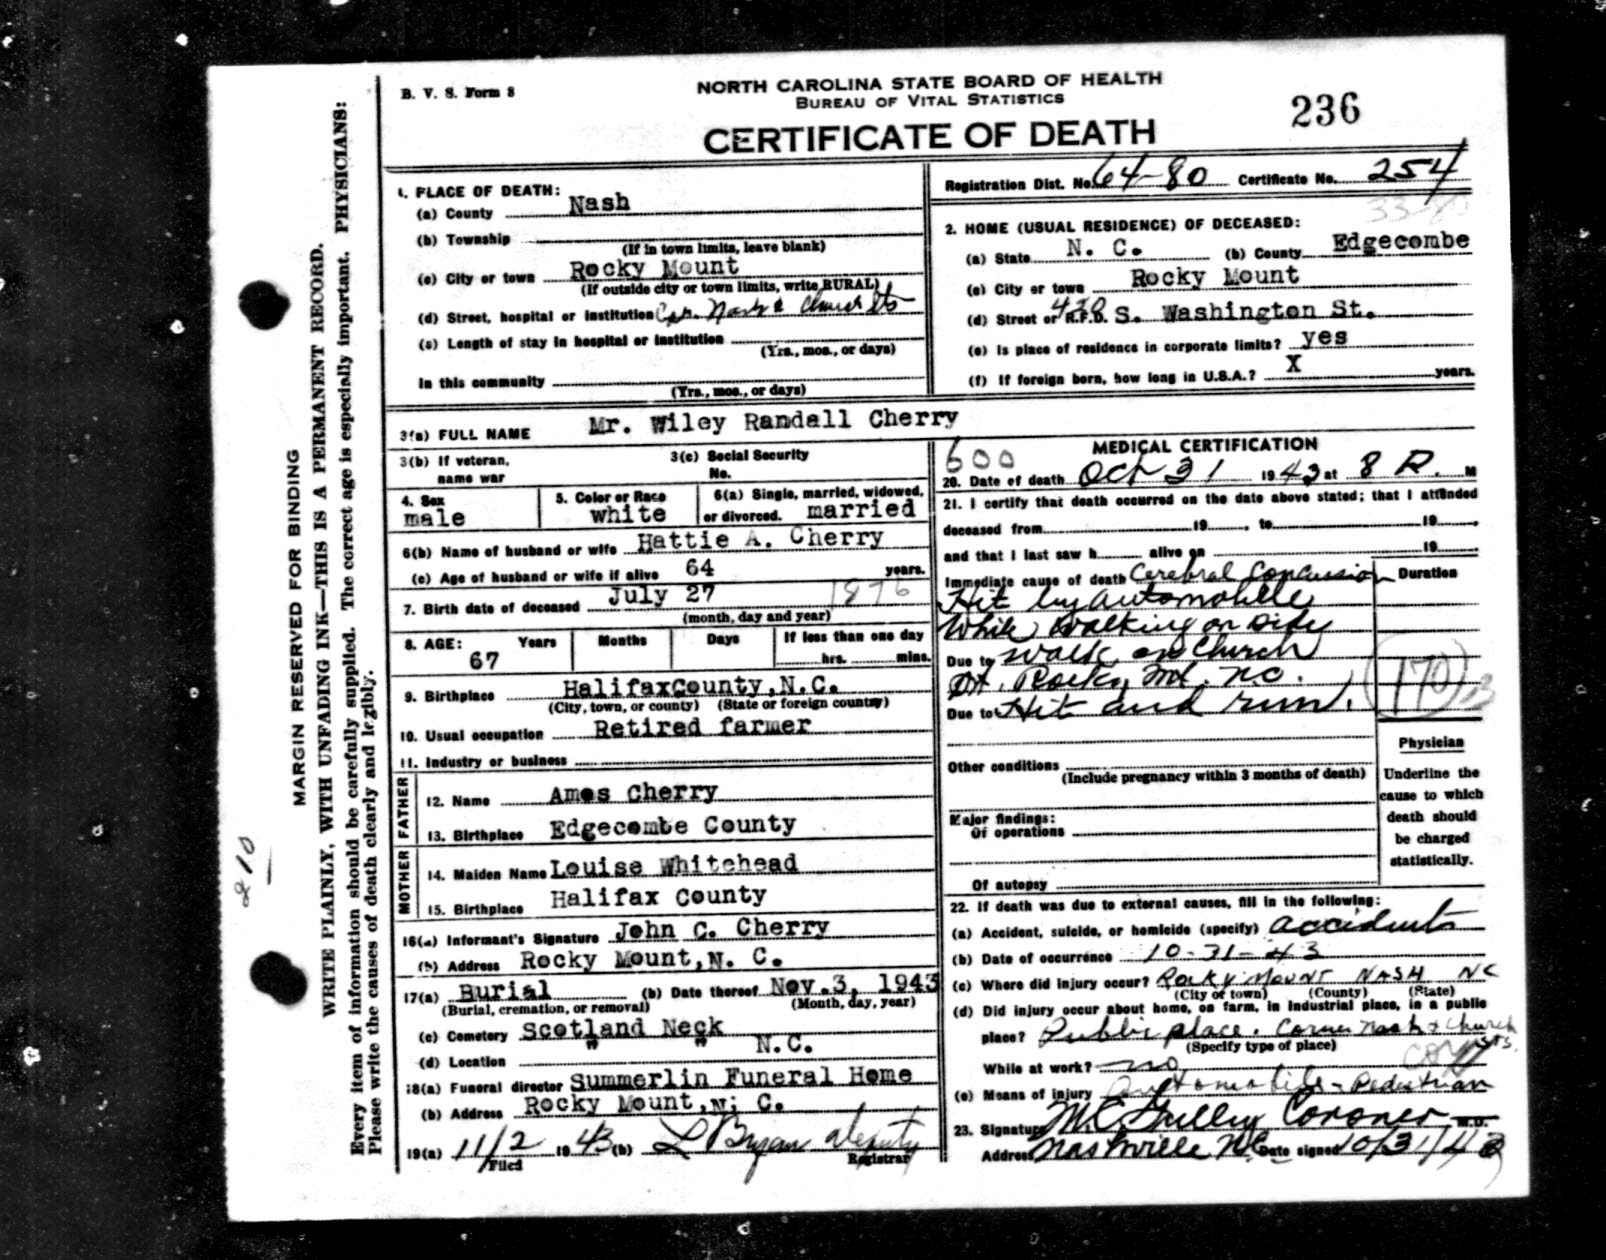 B. V. S. Form 8
NORTH CAROLINA STATE BOARD OF HEALTH
BUREAU OF VITAL STATISTICS
CERTIFICATE OF DEATH
236
MARGIN RESERVED FOR BINDING
WRITE PLAINLY, WITH UNFADING INK—THIS IS A PERMANENT RECORD.
Every item of information should be carefully supplied. The correct age is especially important. PHYSICIANS:
Please write the causes of death clearly and legibly.
210
1. PLACE OF DEATH:
(a) County Nash
(b) Township
(If in town limits, leave blank)
(c) City or town Rocky Mount
(If outside city or town limits, write RURAL)
(d) Street, hospital or institution Cor. Nash & Church Sts
(e) Length of stay in hospital or institution
(Yrs., mos., or days)
In this community
(Yrs., mos., or days)
Registration Dist. No. 64-80 Certificate No. 254
2. HOME (USUAL RESIDENCE) OF DECEASED:
(a) State N. C. (b) County Edgecombe
(c) City or town Rocky Mount
(d) Street or R.F.D. S. Washington St.
(e) Is place of residence in corporate limits? yes
(f) If foreign born, how long in U.S.A.? X years.
3(a) FULL NAME Mr. Wiley Randall Cherry
3(b) If veteran, name war
3(c) Social Security No.
4. Sex male
5. Color or Race white
6(a) Single, married, widowed, or divorced. married
6(b) Name of husband or wife Hattie A. Cherry
(c) Age of husband or wife if alive 64 years.
7. Birth date of deceased July 27 1876
(month, day and year)
8. AGE: Years Months Days If less than one day
67 hrs. mins.
9. Birthplace HalifaxCounty,N.C.
(City, town, or county) (State or foreign country)
10. Usual occupation Retired farmer
11. Industry or business
FATHER
12. Name Amos Cherry
13. Birthplace Edgecombe County
MOTHER
14. Maiden Name Louise Whitehead
15. Birthplace Halifax County
16(a) Informant's Signature John C. Cherry
(b) Address Rocky Mount,N. C.
17(a) Burial (b) Date thereof Nov.3, 1943
(Burial, cremation, or removal) (Month, day, year)
(c) Cemetery Scotland Neck
(d) Location " " N.C.
18(a) Funeral director Summerlin Funeral Home
(b) Address Rocky Mount,N. C.
19(a) 11/2 1943 (b) L Bryan deputy
Filed Registrar
MEDICAL CERTIFICATION
600
20. Date of death Oct 31 1943 at 8 P. M
21. I certify that death occurred on the date above stated; that I attended
deceased from 19 , to 19 ,
and that I last saw h alive on 19
Immediate cause of death Cerebral Concussion Duration
Hit by automobile
While walking on side
Due to walk on Church
St. Rocky Mt. N.C.
Due to Hit and run.
170
Other conditions
(Include pregnancy within 3 months of death)
Major findings:
Of operations
Of autopsy
Physician
Underline the
cause to which
death should
be charged
statistically.
22. If death was due to external causes, fill in the following:
(a) Accident, suicide, or homicide (specify) accident
(b) Date of occurrence 10-31-43
(c) Where did injury occur? Rocky Mount NASH NC
(City or town) (County) (State)
(d) Did injury occur about home, on farm, in industrial place, in a public
place? Public place. Corner Nash & Church Sts.
(Specify type of place)
While at work? no
(e) Means of injury Automobile - Pedestrian
23. Signature M.C. Gulley Coroner M.D.
Address Nashville N.C. Date signed 10/31/43